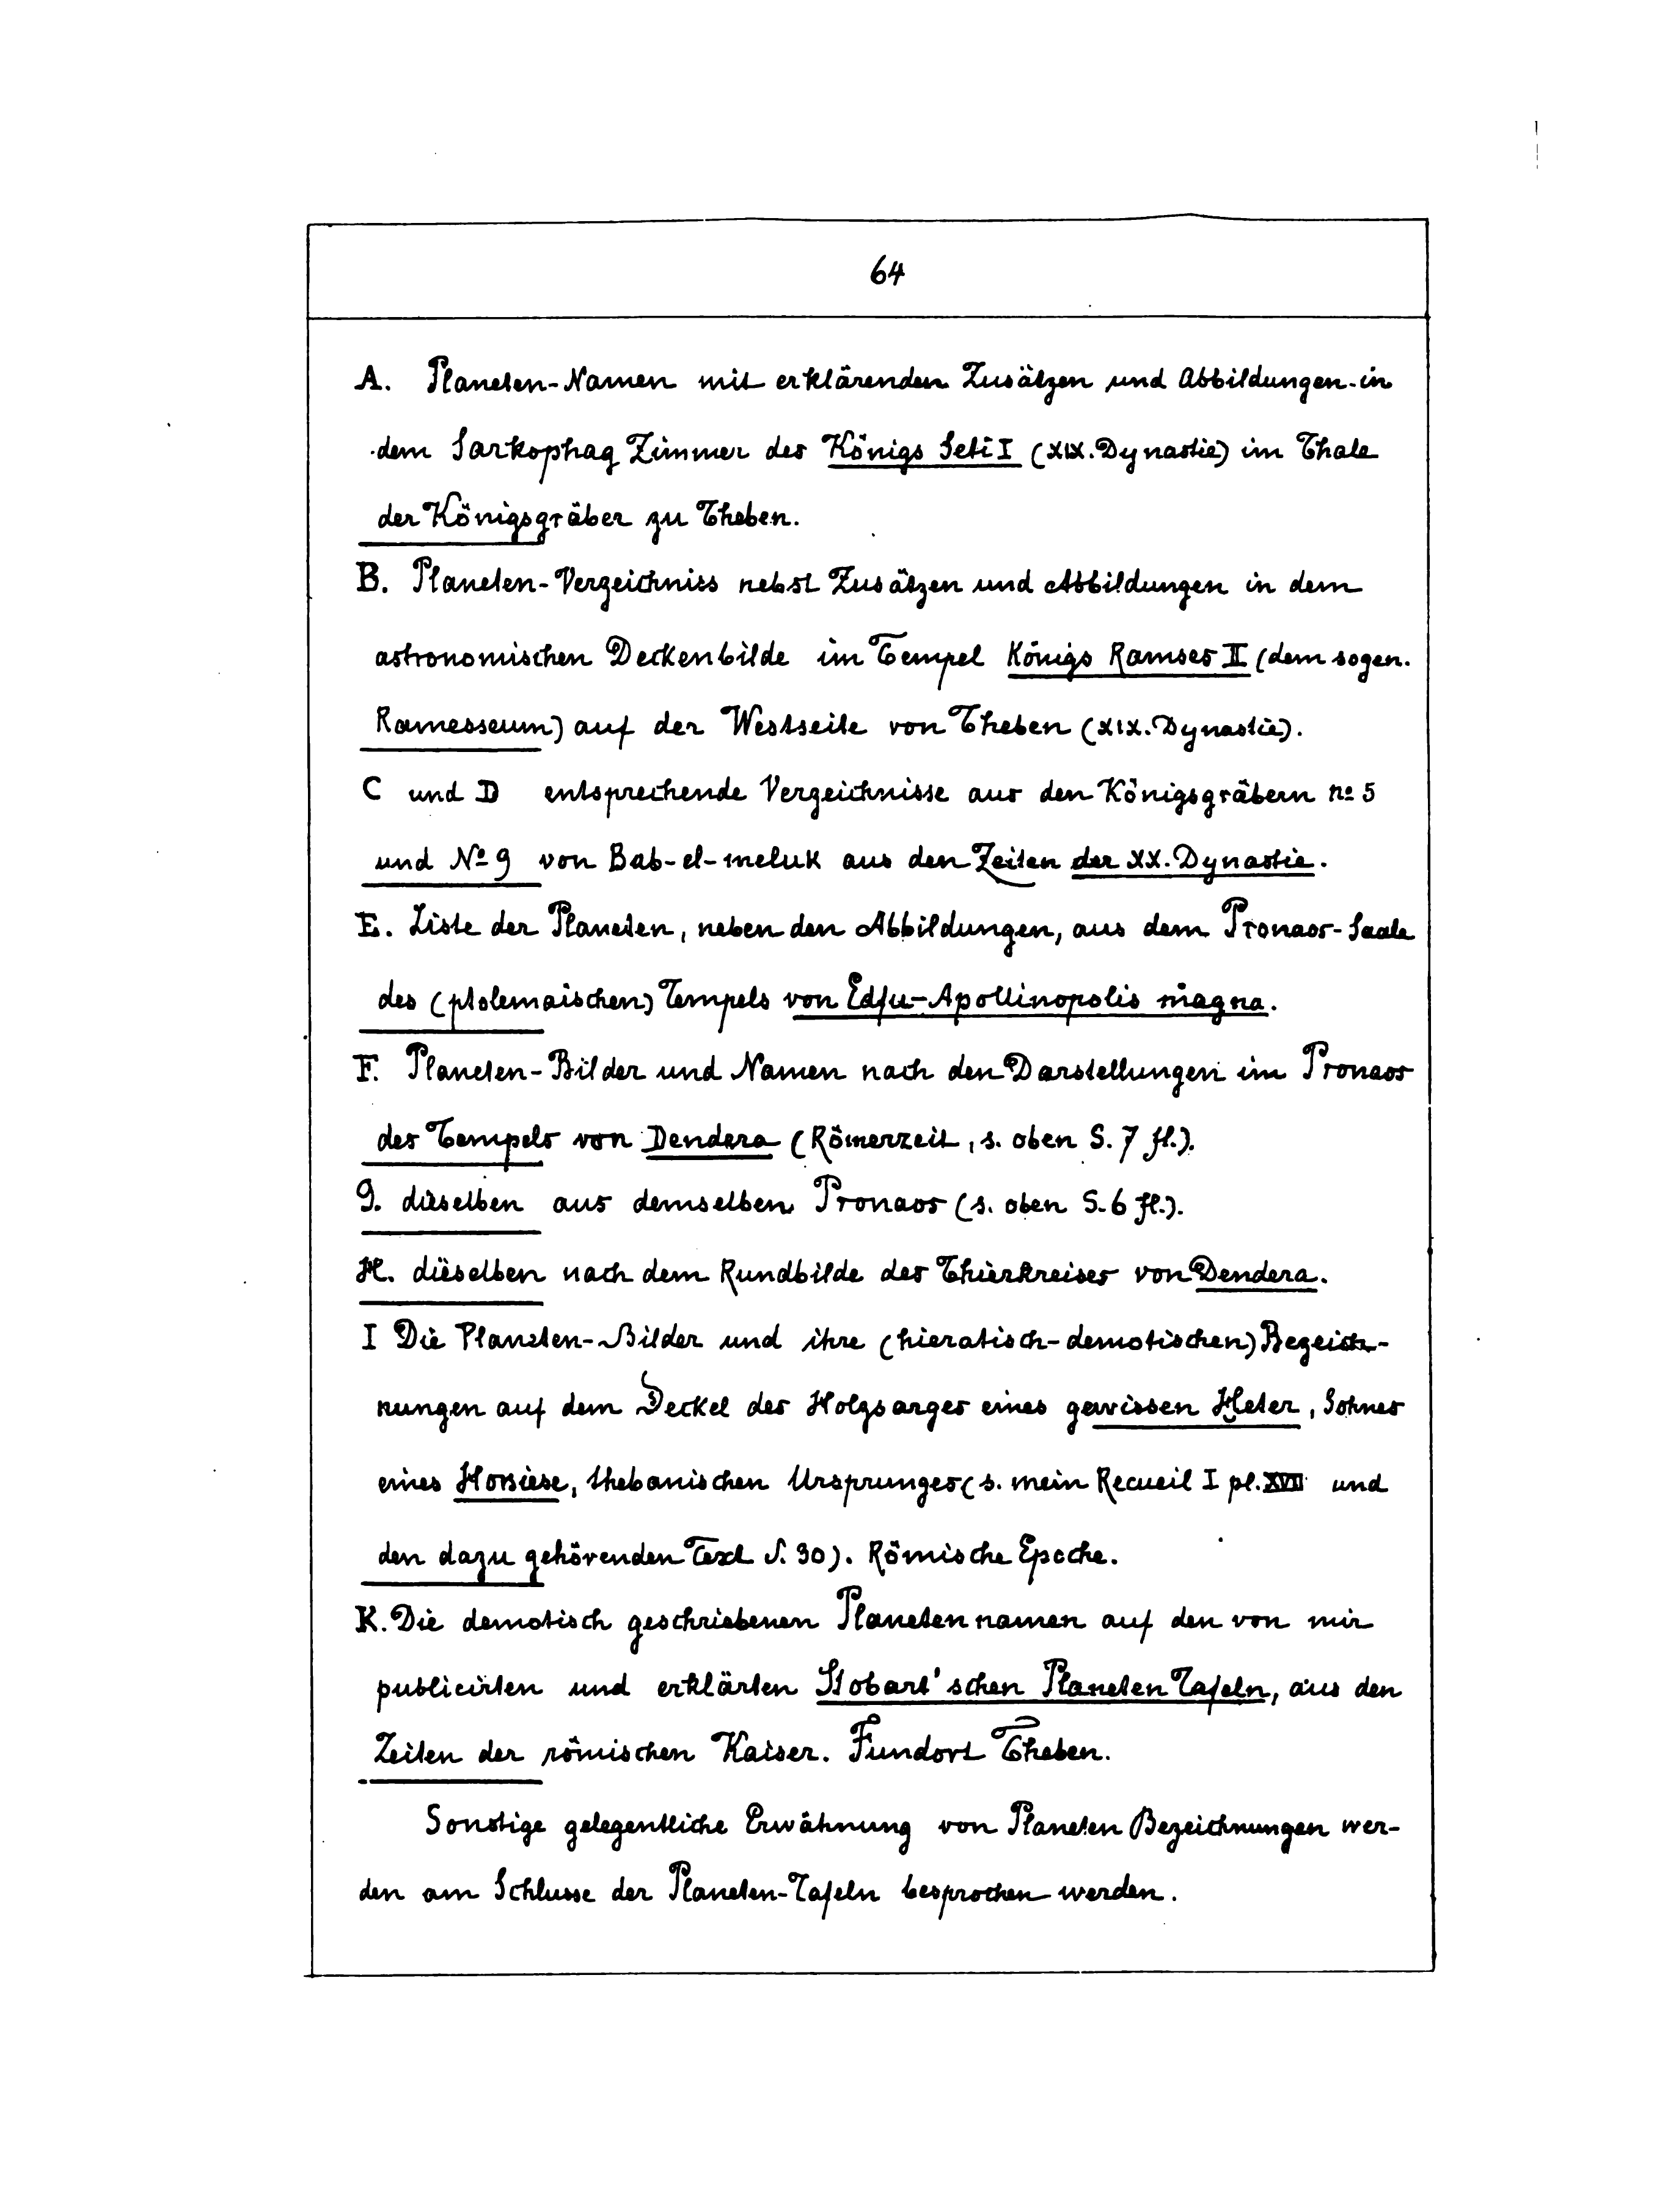 64
A. Planeten-Namen mit erklärenden Zusätzen und Abbildungen in
dem Sarkophag Zimmer des Königs Seti I (XIX. Dynastie) im Thale
der Königsgräber zu Theben.
B. Planeten-Verzeichniss nebst Zusätzen und Abbildungen in dem
astronomischen Deckenbilde im Tempel Königs Ramses II (dem sogen.
Ramesseum) auf der Westseite von Theben (XIX. Dynastie).
C und D entsprechende Verzeichnisse aus den Königsgräbern no 5
und No 9 von Bab-el-meluk aus den Zeiten der XX. Dynastie.
E. Liste der Planeten, neben den Abbildungen, aus dem Pronaos-Saale
des (ptolemaischen) Tempels von Edfu-Apollinopolis magna.
F. Planeten-Bilder und Namen nach den Darstellungen im Pronaos
des Tempels von Dendera (Römerzeit, s. oben S. 7 fl.).
G. dieselben aus demselben Pronaos (s. oben S. 6 fl.).
H. dieselben nach dem Rundbilde des Thierkreises von Dendera.
I Die Planeten-Bilder und ihre (hieratisch-demotischen) Bezeich-
nungen auf dem Deckel des Holzsarges eines gewissen Ḫeter, Sohnes
eines Horsiese, thebanischen Ursprunges (s. mein Recueil I pl. XVII und
den dazu gehörenden Text S. 30). Römische Epoche.
K. Die demotisch geschriebenen Planetennamen auf den von mir
publicirten und erklärten Stobart'schen Planeten Tafeln, aus den
Zeiten der römischen Kaiser. Fundort Theben.
Sonstige gelegentliche Erwähnung von Planeten Bezeichnungen wer-
den am Schlusse der Planeten-Tafeln besprochen werden.